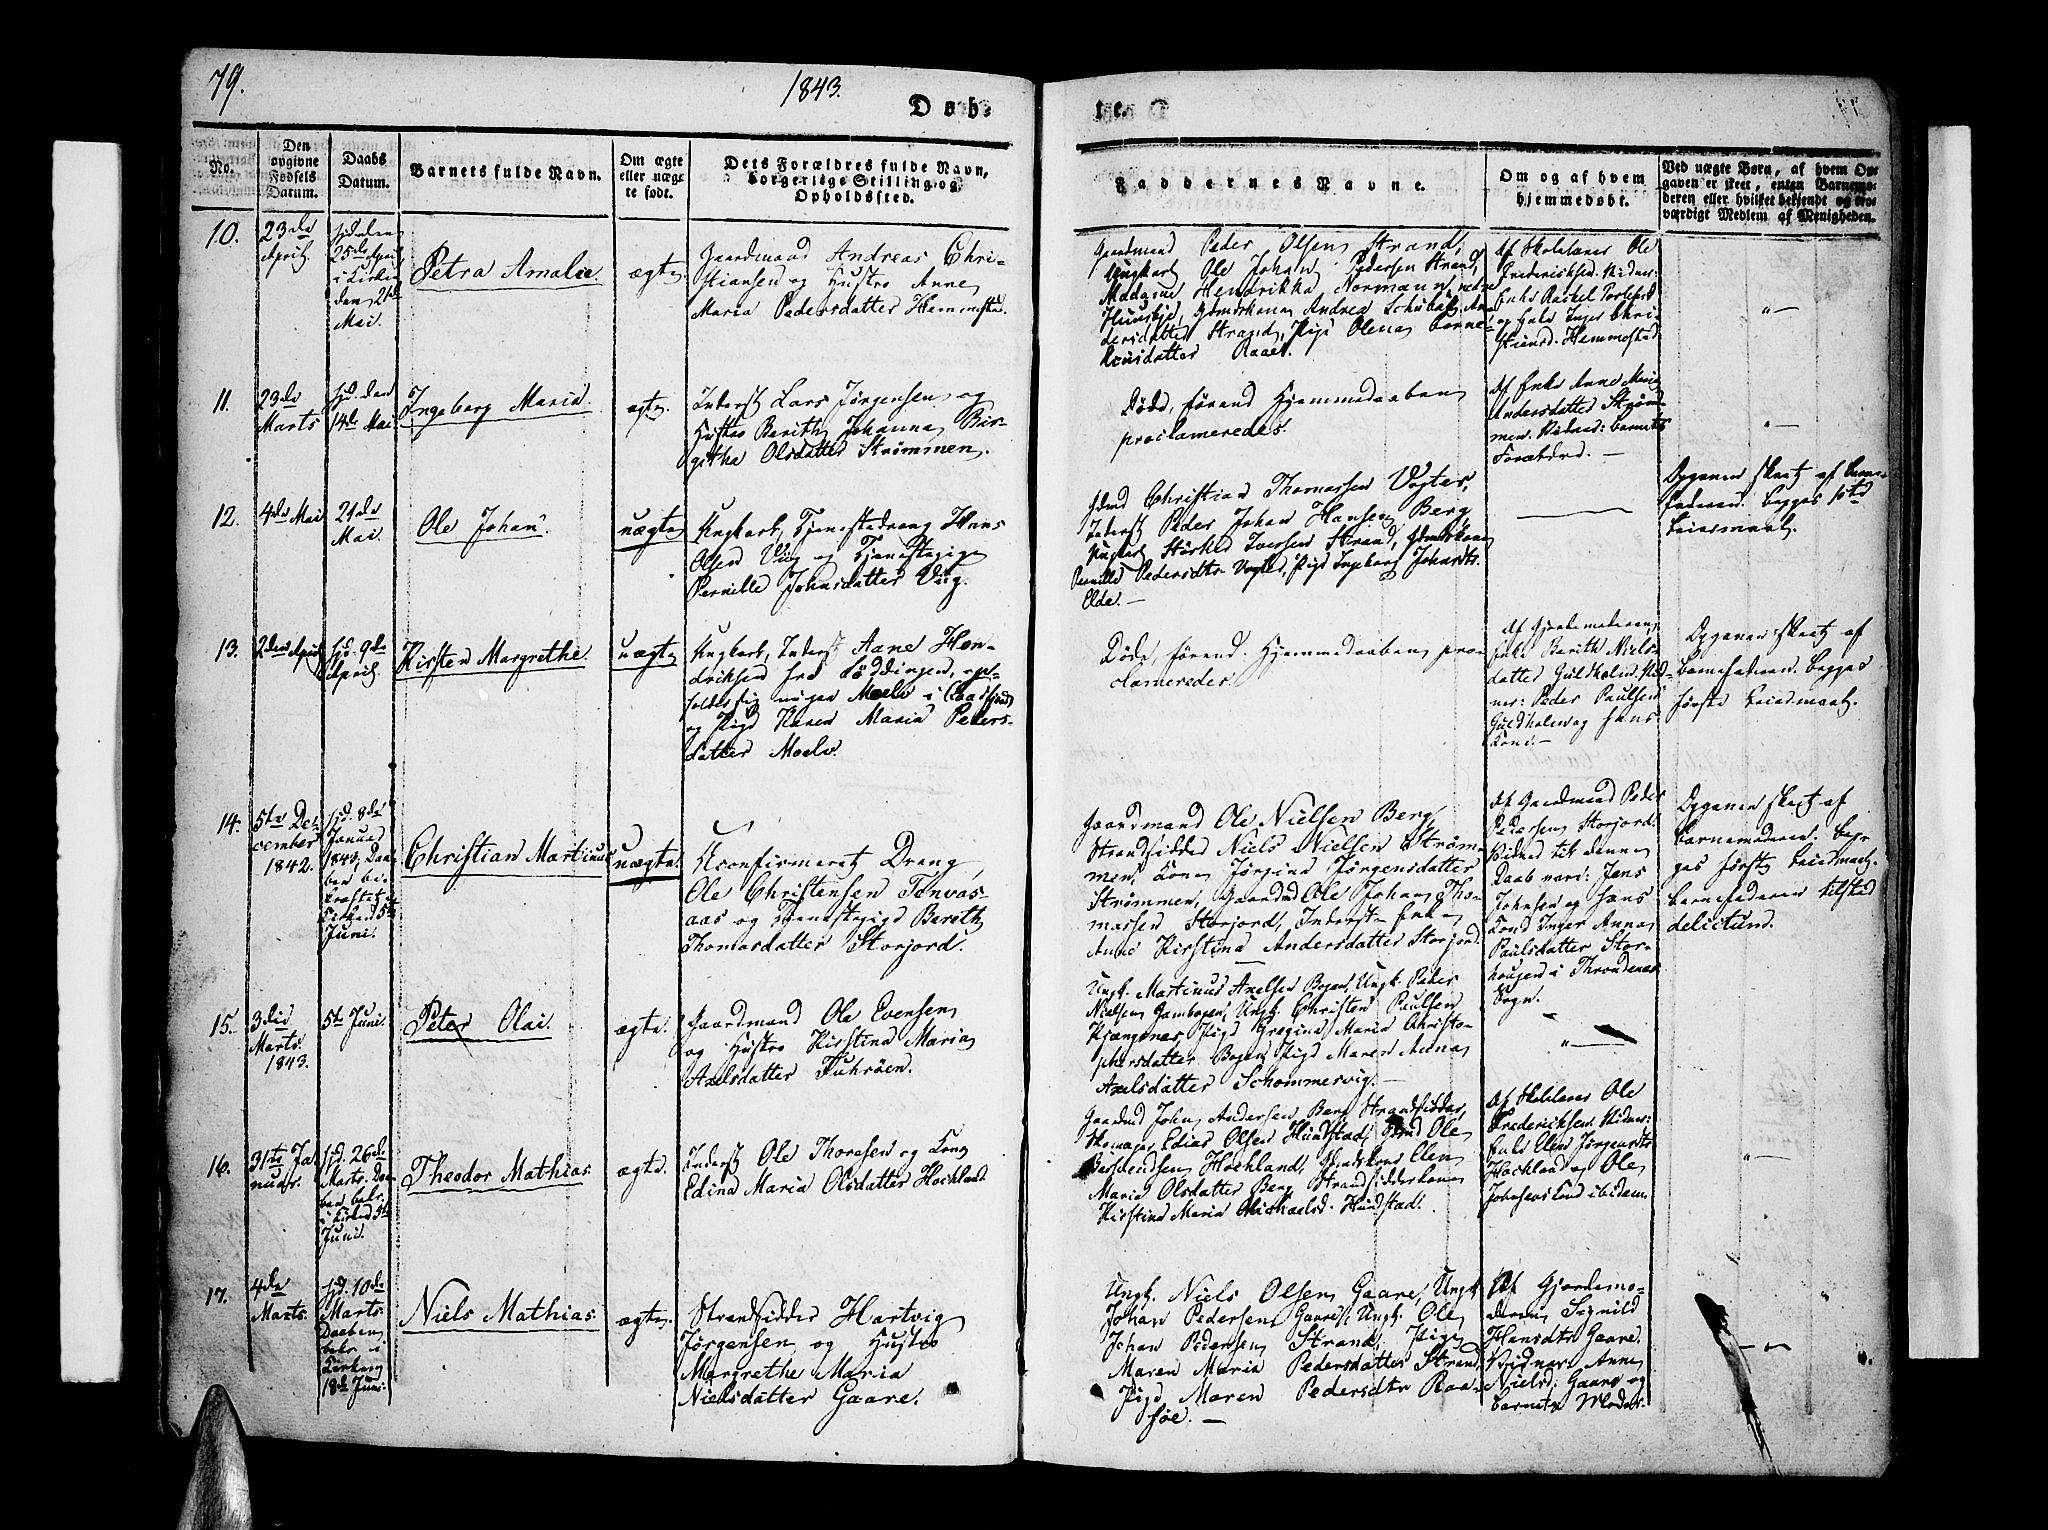 79.
1843.
Døb-
te
No.
Den
opgivne
Fødsels
Datum.
Daabs
Datum.
Barnets fulde Navn.
Om ægte
eller uæg-
te født.
Dets Forældres fulde Navn,
borgerlige Stilling og
Opholdssted.
Faddernes Navne.
Om og af hvem
hjemmedøbt.
Ved uægte Børn, af hvem Op-
gaven er skeet, enten Barnemo-
deren eller hvilket bekjendt og tro-
værdigt Medlem af Menigheden.
10.
23de
April
hjd. den
25de April
i Kirken
den 21de
Mai.
Petra Amalia.
ægte
Gaardmand Andreas Chri-
stiansen og Hustro Anne
Maria Pedersdatter Hemmestad.
Gaardmand Peder Olsen Strand,
Ungkarl Ole Johan Pedersen Strand,
Madame Hendrikka Normann
Gdmdskone Andrea Schubak An-
dersdatter Strand, Pige Olena Corne-
liusdatter
Af Skolelærer Ole
Fredericksen. Vidner:
Enke Rachel
og Inger Chri-
stiansd. Hemmestad.
"
11.
23de
Marts
hjd. den
14de Mai
Ingeborg Maria.
ægte.
Inderst Lars Jørgensen og
Hustro Berith Johanna Bir-
githa Olsdatter Strømmen.
Døde, førend Hjemmedaaben
proclameredes.
Af Enke Anne Maria
Andersdatter Strøm-
men. Vidner: Barnets
Forældre. —
"
12.
4de Mai
21de
Mai.
Ole Johan.
uægte
Ungkarl, Tjenestedreng Hans
Olsen Viig og Tjenestepige
Pernille Johnsdatter Viig.
Gdmd Christian Thomassen Vogter,
Inderst Peder Johan Hansen Berg
Ungkarl Iversen Strand, Gdmdskone
Pernille Pedersdtr Pige Ingeborg Johnsdtr.
Elde. —
Opgaven skeet af Barne-
faderen. Begges 1ste
Leiermaal.
13.
2den April
hjd. 9de
April.
Kirsten Margrethe.
uægte
Ungkarl, Inderst Aane Hen-
driksen fra Løddingen, op-
holder sig nu paa Moelv i
og Pige Karen Maria Peders-
datter Moelv.
Døde, førend Hjemmedaaben pro-
clameredes.
Af Gjordemoderen,
Enke Berith Niels-
datter Guldholm. Vid-
ner: Peder Paulsen
Guldholm og hans
Kone. —
Opgaven skeet af
Barnefaderen. Begges
første Leiermaal.
14.
5te De-
cember
1842.
hjd. 8de
Januar
1843, Daa-
ben be-
kræftet i
Kirken 5te
Juni.
Christian Martinus
uægte.
Uconfirmeret Dreng
Ole Christensen Tenvas-
aas og Tjenestepige Berith
Thomasdatter Storjord.
Gaardmand Ole Nielsen Berg,
Strandsidder Niels Nielsen Strøm-
men, Kone Jørgina Jørgensdatter
Strømmen, Gaardmd Ole Johan Tho-
massen Storjord, Inderst Enke
Anne Kirstina Andersdatter Storjord.
Af Gaardmand Peder
Pedersen Storjord.
Vidner til denne
Daab vare: Jens
Johnsen og hans
Kone Inger Anna
Paulsdatter Stor-
haugen i Throndenæs
Sogn.
Opgaven skeet af
Barnemoderen. Beg-
ges første Leiermaal.
Barnefaderen tilstod
delictum.
15.
3die
Marts
1843.
5te Juni.
Peter Olai.
ægte.
Gaardmand Ole Evensen
og Hustro Kirstina Maria
Axelsdatter Fuhrøen.
Ungk. Martinus Axelsen Bogen, Ungk. Peder
Nielsen Gambogen, Ungk. Christen Paulsen
Kjængsnæs, Pige Gregina Maria Christo-
phersdatter Bogen, Pige Maren Anna
Axelsdatter Schommesvig. —
"
16.
31te Ja-
nuar.
hjd. 26de
Marts. Daa-
ben bekr.
i Kirken 5te
Juni.
Theodor Mathias.
ægte.
Inderst Ole Thoresen og Kone
Edina Maria Olsdatter Hochland.
Gaardmd John Andersen Berg, Strandsidder,
Skomager Edias Olsen Hundstad, Gdmd Ole
Berhendsen Hochland, Gdmdskone Elen
Maria Olsdatter Berg, Strandsidderkone
Kirstina Maria Michaelsd. Hundstad.
Af Skolelærer Ole
Fredericksen. Vidner:
Enke Elen Jørgensdtr
Hochland og Ole
Johnsens Kone ibidem.
"
17.
4de
Marts.
hjd. 10de
Marts.
Daaben
bekr. i
Kirken
18de Juni.
Niels Mathias.
ægte.
Strandsidder Hartvig
Jørgensen og Hustro
Margrethe Maria
Nielsdatter Gaare.
Ungk. Niels Olsen Gaare, Ungk.
Johan Pedersen Gaare, Ungk. Ole
Johan Pedersen Strand, Pige
Maren Maria Pedersdatter Strand,
Pige Maren Pedersdtr Raa-
søe. —
Af Gjordemo-
deren Segnild
Hansdtr Gaare.
Vidner: Anne
Nielsd. Gaare og
Barnets Moder.
"